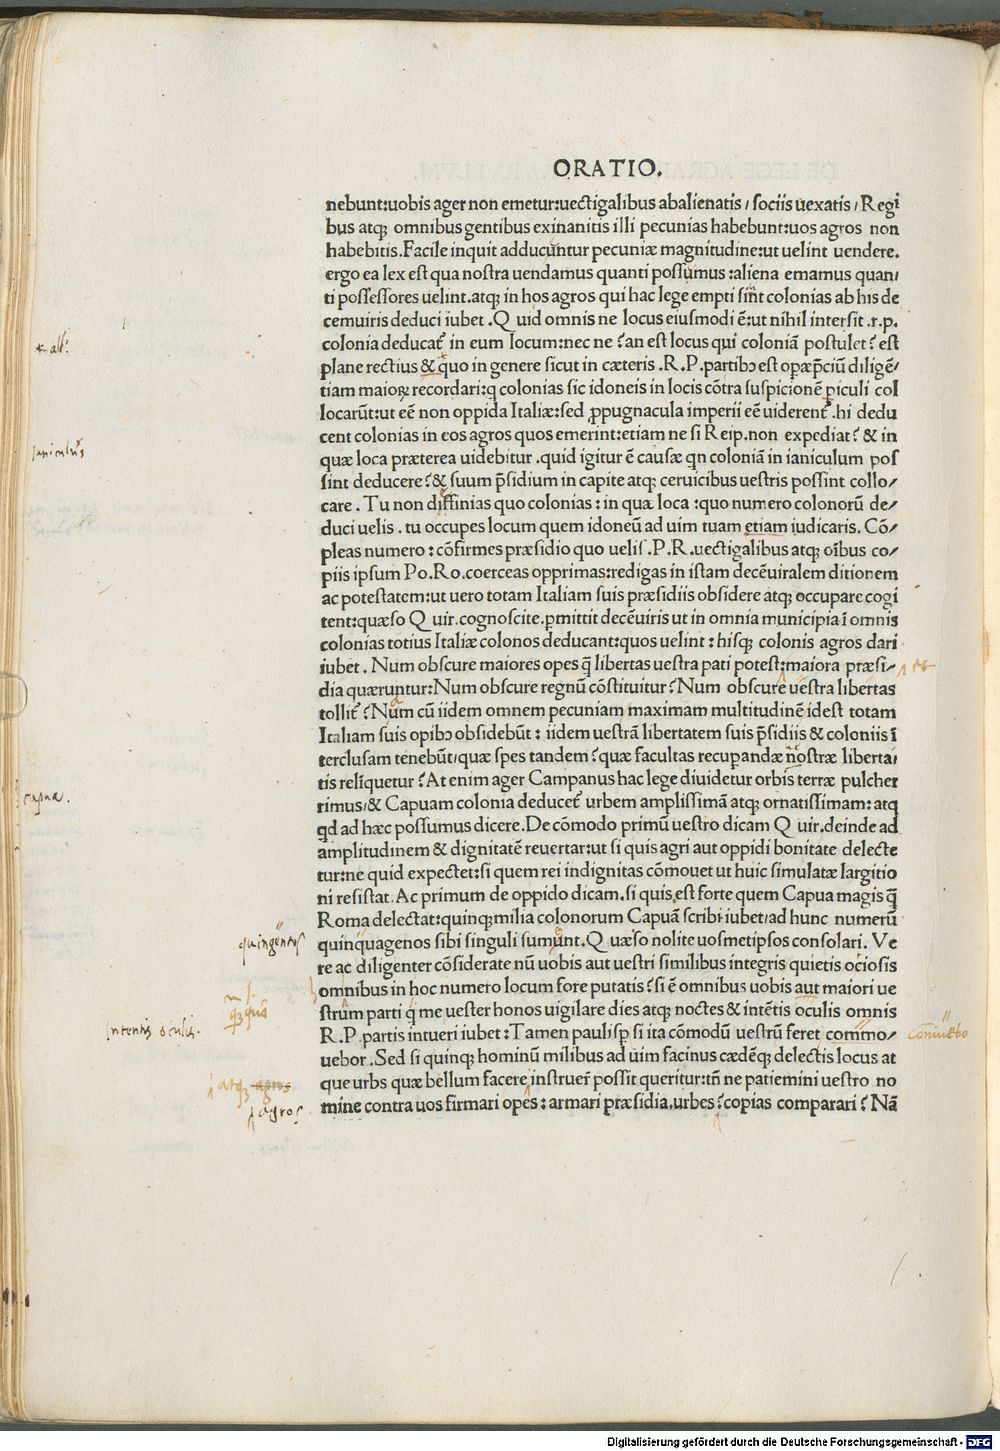 ORATIO.
nebunt:uobis ager non emetur:uectigalibus abalienatis / sociis uexatis / Regi
bus atq; omnibus gentibus exinanitis illi pecunias habebunt:uos agros non
habebitis.Facile inquit adducuntur pecuniæ magnitudine:ut uelint uendere.
ergo ea lex est qua nostra uendamus quanti possumus :aliena emamus quan/
ti possessores uelint.atq; in hos agros qui hac lege empti sint colonias ab his de
cemuiris deduci iubet .Q uid omnis ne locus eiusmodi ē:ut nihil intersit .r.p.
colonia deducat̄ in eum locum:nec ne ?an est locus qui coloniā postulet? est
plane rectius & quo in genere sicut in cæteris .R.P.partibɔ est operæp̄ciū diligē/
tiam maioꝝ recordari:q colonias sic idoneis in locis cōtra suspicionē ꝑiculi col
locarūt:ut eē non oppida Italiæ:sed ꝓpugnacula imperii eē uiderent̄ .hi dedu
cent colonias in eos agros quos emerint:etiam ne si Reip.non expediat? & in
quæ loca præterea uidebitur .quid igitur ē causæ qn coloniā in ianiculum pos
sint deducere?& suum p̄sidium in capite atq; ceruicibus uestris possint collo/
care . Tu non diffinias quo colonias : in quæ loca :quo numero colonorū de/
duci uelis . tu occupes locum quem idoneū ad uim tuam etiam iudicaris. Cō/
pleas numero : cōfirmes præsidio quo uelis.P.R.uectigalibus atq; oībus co/
piis ipsum Po.Ro.coerceas opprimas:redigas in istam decēuiralem ditionem
ac potestatem:ut uero totam Italiam suis præsidiis obsidere atq; occupare cogi
tent:quæso Q uir.cognoscite.ꝑmittit decēuiris ut in omnia municipia ī omnis
colonias totius Italiæ colonos deducant:quos uelint : hisq; colonis agros dari
iubet . Num obscure maiores opes q̄ libertas uestra pati potest:maiora præsi/
dia quæruntur:Num obscure regnū cōstituitur?Num obscure uestra libertas
tollit̄ ?Num cū iidem omnem pecuniam maximam multitudinē idest totam
Italiam suis opibɔ obsidebūt : iidem uestrā libertatem suis p̄sidiis & coloniis ī
terclusam tenebūt/quæ spes tandem ?quæ facultas recuꝑandæ nostræ liberta/
tis reliquetur ?At enim ager Campanus hac lege diuidetur orbis terræ pulcher
rimus/& Capuam colonia deducet̄ urbem amplissimā atq; ornatissimam: atq
qd ad hæc possumus dicere.De cōmodo primū uestro dicam Q uir.deinde ad
amplitudinem & dignitatē reuertar:ut si quis agri aut oppidi bonitate delecte
tur:ne quid expectet:si quem rei indignitas cōmouet ut huic simulatæ largitio
ni resistat.Ac primum de oppido dicam.si quis est forte quem Capua magis q̄
Roma delectat:quinq;milia colonorum Capuā scribi iubet/ad hunc numerū
quinquagenos sibi singuli sumunt.Q uæso nolite uosmetipsos consolari. Ve
re ac diligenter cōsiderate nū uobis aut uestri similibus integris quietis ociosis
omnibus in hoc numero locum fore putatis?si ē omnibus uobis aut maiori ue
strum parti q̇ me uester honos uigilare dies atq; noctes & intētis oculis omnis
R.P.partis intueri iubet : Tamen paulisꝑ si ita cōmodū uestrū feret commo/
uebor .Sed si quinq; hominū milibus ad uim facinus cædēq; delectis locus at
que urbs quæ bellum facere instruer̄ possit queritur:tn̄ ne patiemini uestro no
mine contra uos firmari opes : armari præsidia,urbes ?copias comparari? Nā
ianiculus
capua.
quingentos
intentis oculis.
atq; agros
agros
conniuebo
Digitalisierung gefördert durch die Deutsche Forschungsgemeinschaft - DFG